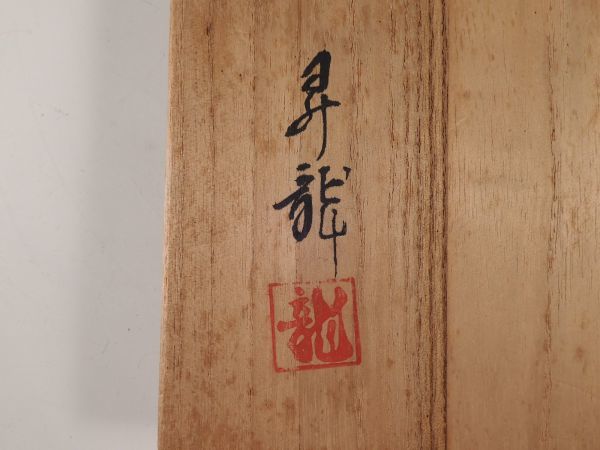 昇龍
龍